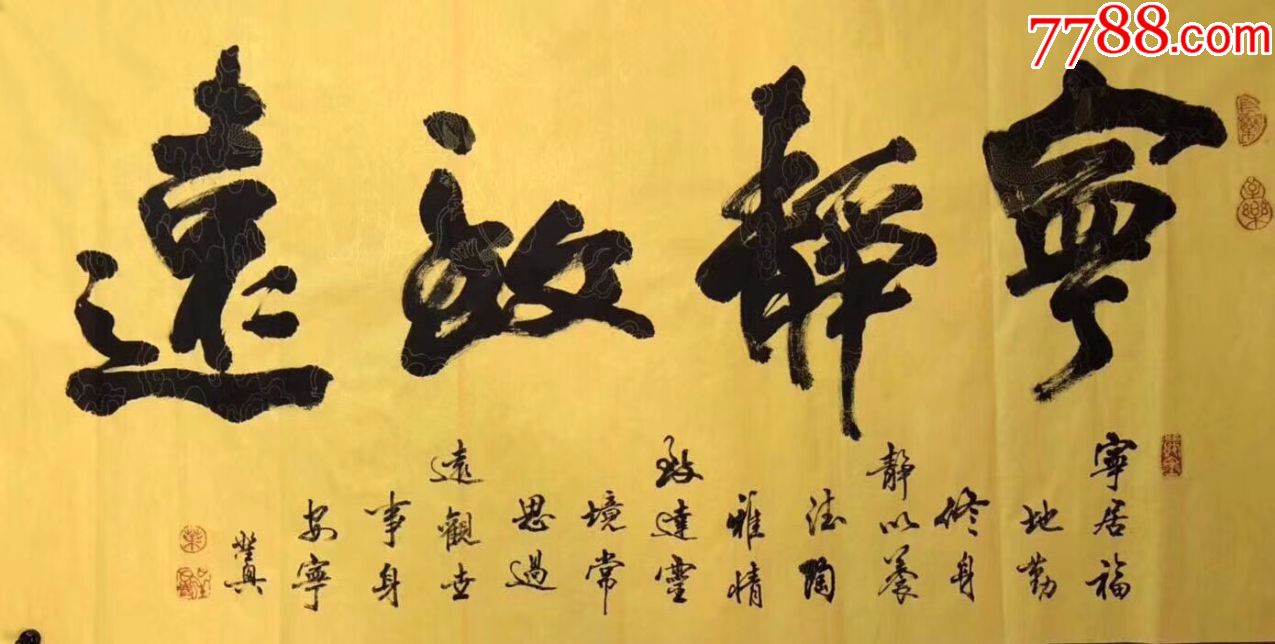 7788.com
寧靜致遠
寧居福
地勤
修身
靜以養
德陶
雅情
致達靈
境常
思過
遠觀世
事身
安寧